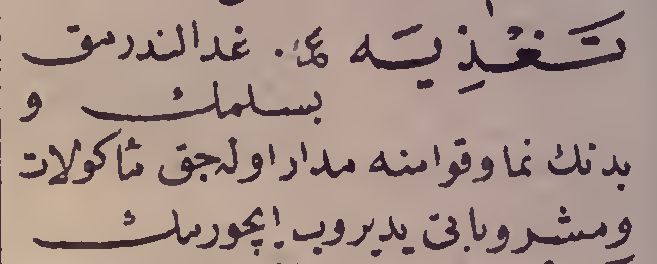 تَغْذِيَه ع. غدالندرمق
بسلمك و
بدنك نما وقوامنه مدار اوله‌جق مأكولات
ومشروباتی یدیروب ایچورمك